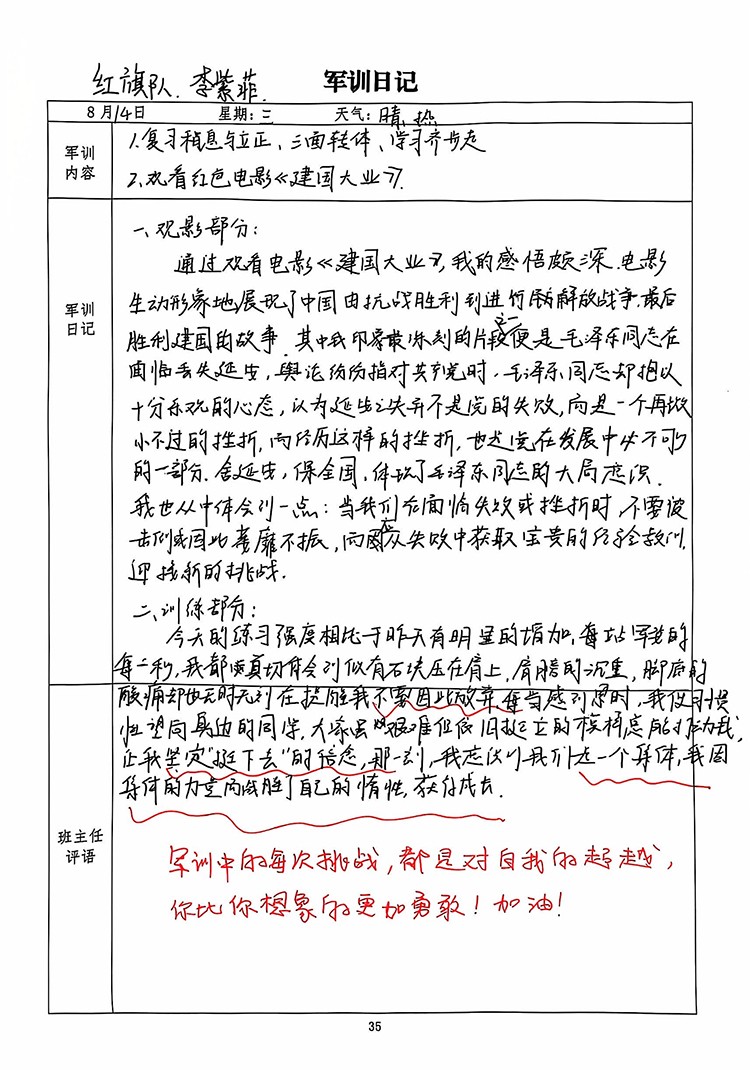 红旗队 李紫菲 军训日记
8月14日 星期:三 天气:晴、热
军训内容
1.复习稍息与立正、三面转体、学习齐步走
2.观看红色电影《建国大业》.
军训日记
一、观影部分:
通过观看电影《建国大业》,我的感悟颇深.电影
生动形象地展现了中国由抗战胜利到进行解放战争.最后
胜利建国的故事.其中我印象最深刻的片段之一便是毛泽东同志在
面临丢失延安,舆论纷纷指对共产党时.毛泽东同志却抱以
十分乐观的心态,认为延安之失并不是党的失败,而是一个再微
小不过的挫折,而经历这样的挫折,也是党在发展中必不可少
的一部分.舍延安,保全国,体现了毛泽东同志的大局意识.
我也从中体会到一点:当我们在面临失败或挫折时,不要被
击倒或因此萎靡不振,而应从失败中获取宝贵的经验教训,
迎接新的挑战.
二、训练部分:
今天的练习强度相比于昨天有明显的增加,每站军姿的
每一秒,我都真切体会到似有石块压在肩上,肩膀的沉重,脚底的
酸痛却也无时无刻在提醒我不要因此放弃.每当感到累时,我便习惯
性望向身边的同学.大家虽艰难但依旧挺立的模样总能打动我,
让我坚定"挺下去"的信念,那一刻,我意识到我们是一个集体,我因
集体的力量而战胜了自己的惰性,获得成长.
班主任评语
军训中的每次挑战,都是对自我的超越,
你比你想象的更加勇敢!加油!
35